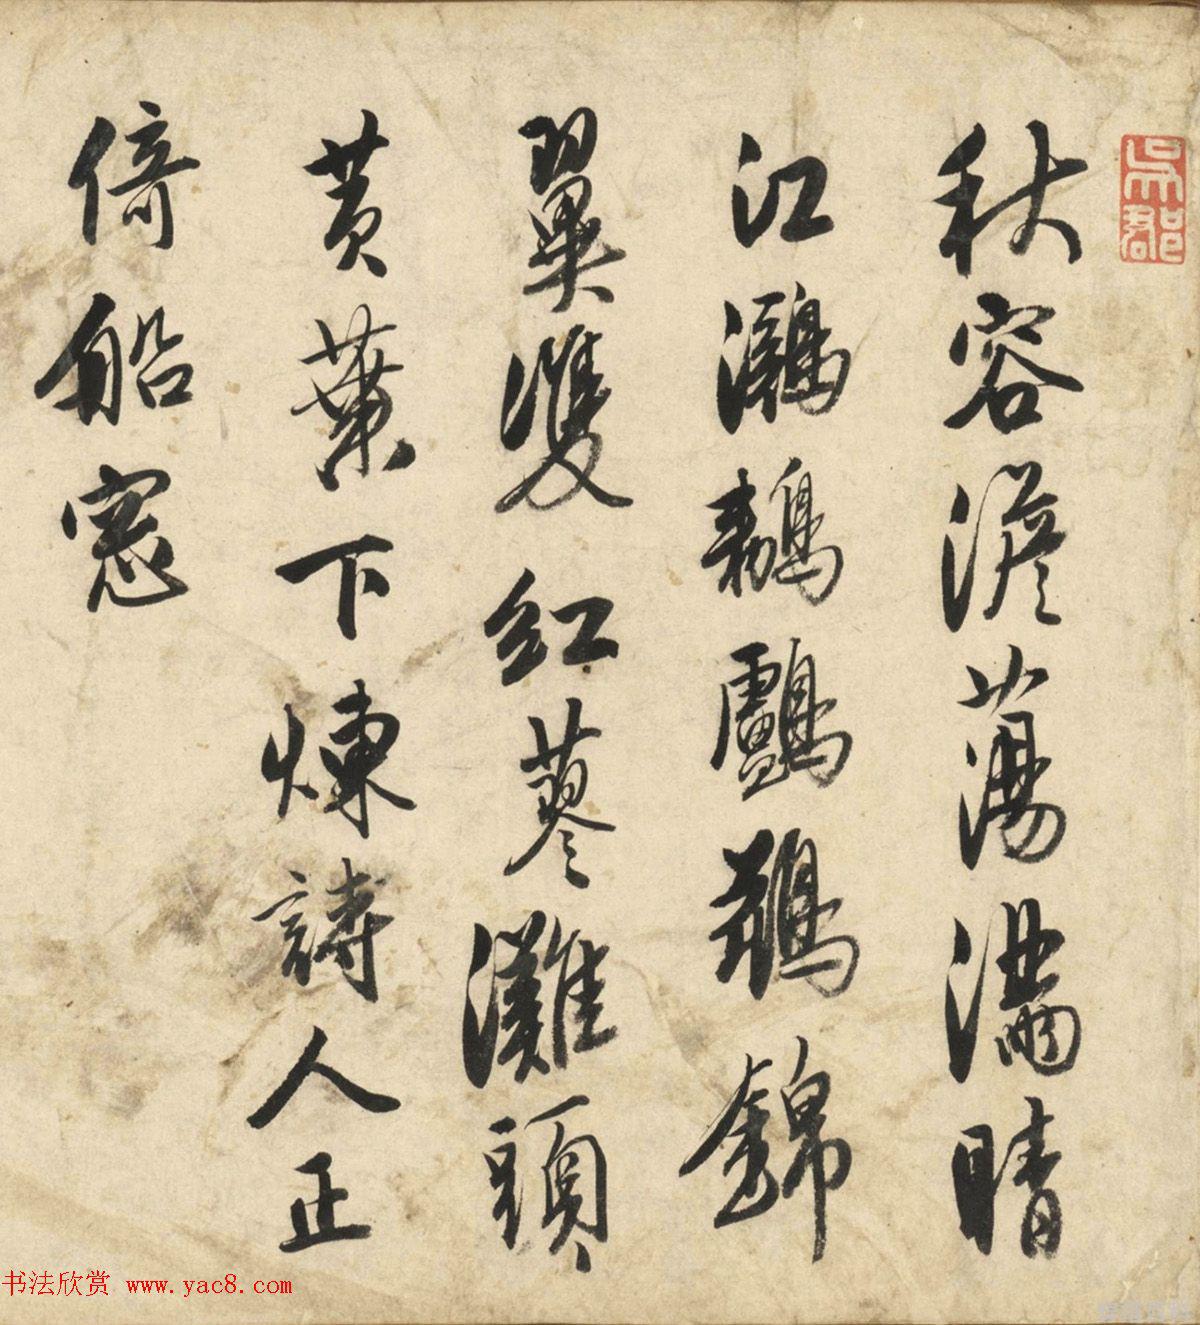 吳郡
秋容澹蕩滿晴
江鸂鶒鸕鶿錦
翼雙紅蓼灘頭
黄葉下煉詩人正
倚船窓
书法欣赏 www.yac8.com